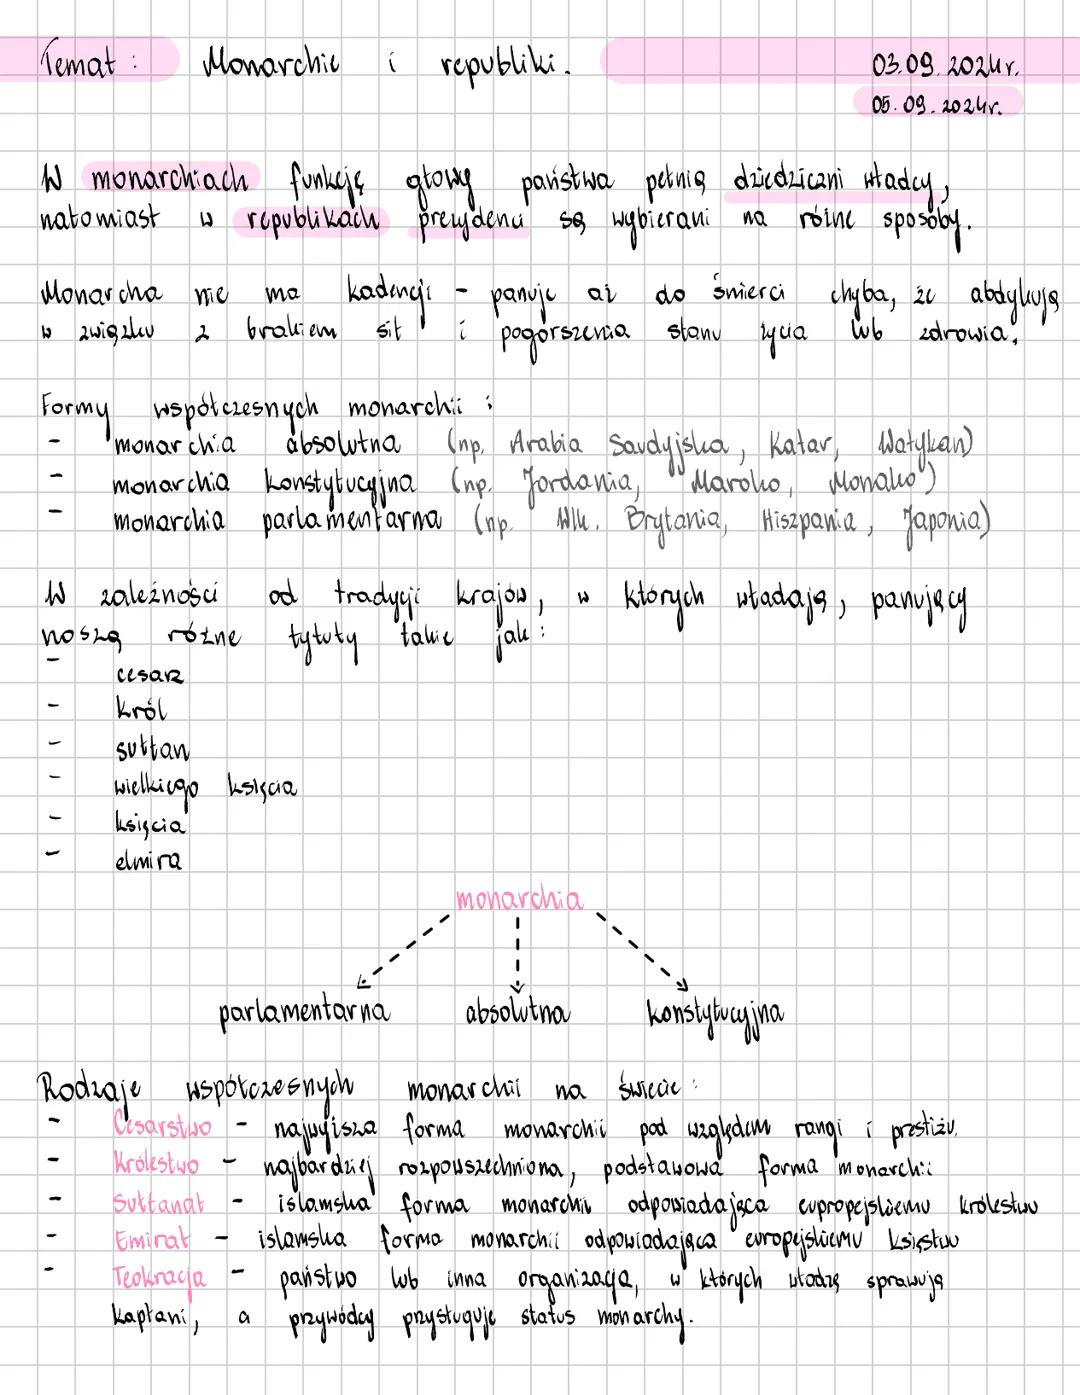 Temat : Monarchie i republiki. 03.09.2024r.
05.09.2024r.
W monarchiach funkcję głowy państwa pełnią dziedziczni władcy,
natomiast w republikach prezydenci są wybierani na różne sposoby.
Monarcha nie ma kadencji - panuje aż do śmierci chyba, że abdykują
w związku z brakiem sił i pogorszenia stanu życia lub zdrowia.
Formy współczesnych monarchii :
- monarchia absolutna (np. Arabia Saudyjska, Katar, Watykan)
- monarchia konstytucyjna (np. Jordania, Maroko, Monako)
- monarchia parlamentarna (np. Wlk. Brytania, Hiszpania, Japonia)
W zależności od tradycji krajów, w których władają, panujący
noszą różne tytuły takie jak :
- cesarz
- król
- sułtan
- wielkiego księcia
- księcia
- elmira
monarchia
parlamentarna absolutna konstytucyjna
Rodzaje współczesnych monarchii na świecie :
- Cesarstwo - najwyższa forma monarchii pod względem rangi i prestiżu.
- Królestwo - najbardziej rozpowszechniona, podstawowa forma monarchii
- Sułtanat - islamska forma monarchii odpowiadająca eupropejskiemu królestwu
- Emirat - islamska forma monarchii odpowiadająca europejskiemu księstwu
- Teokracja - państwo lub inna organizacja, w których władzę sprawują
kapłani, a przywódcy przysługuje status monarchy.